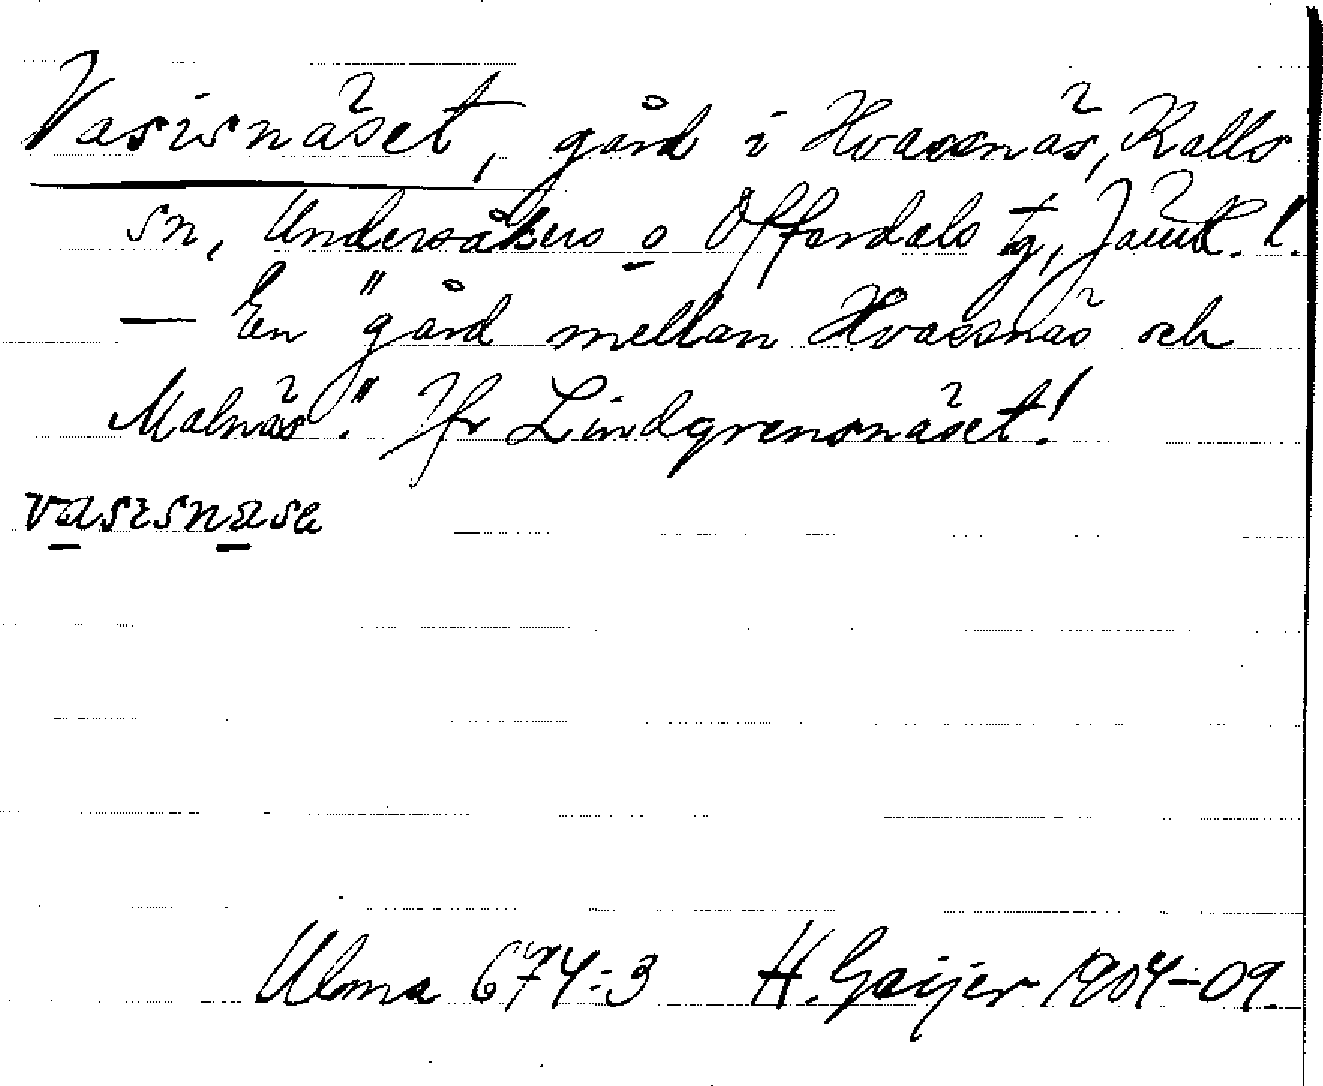 Vasisnäset, gård i Hvassnäs, Kalls
sn, Undersåkers o Offerdals tg, Jämtl.!
— En "gård mellan Hvassnäs och
Malnäs." Jfr Lindgrensnäset!
vasisnäse
Ulma 674:3 H. Geijer 1904-09.